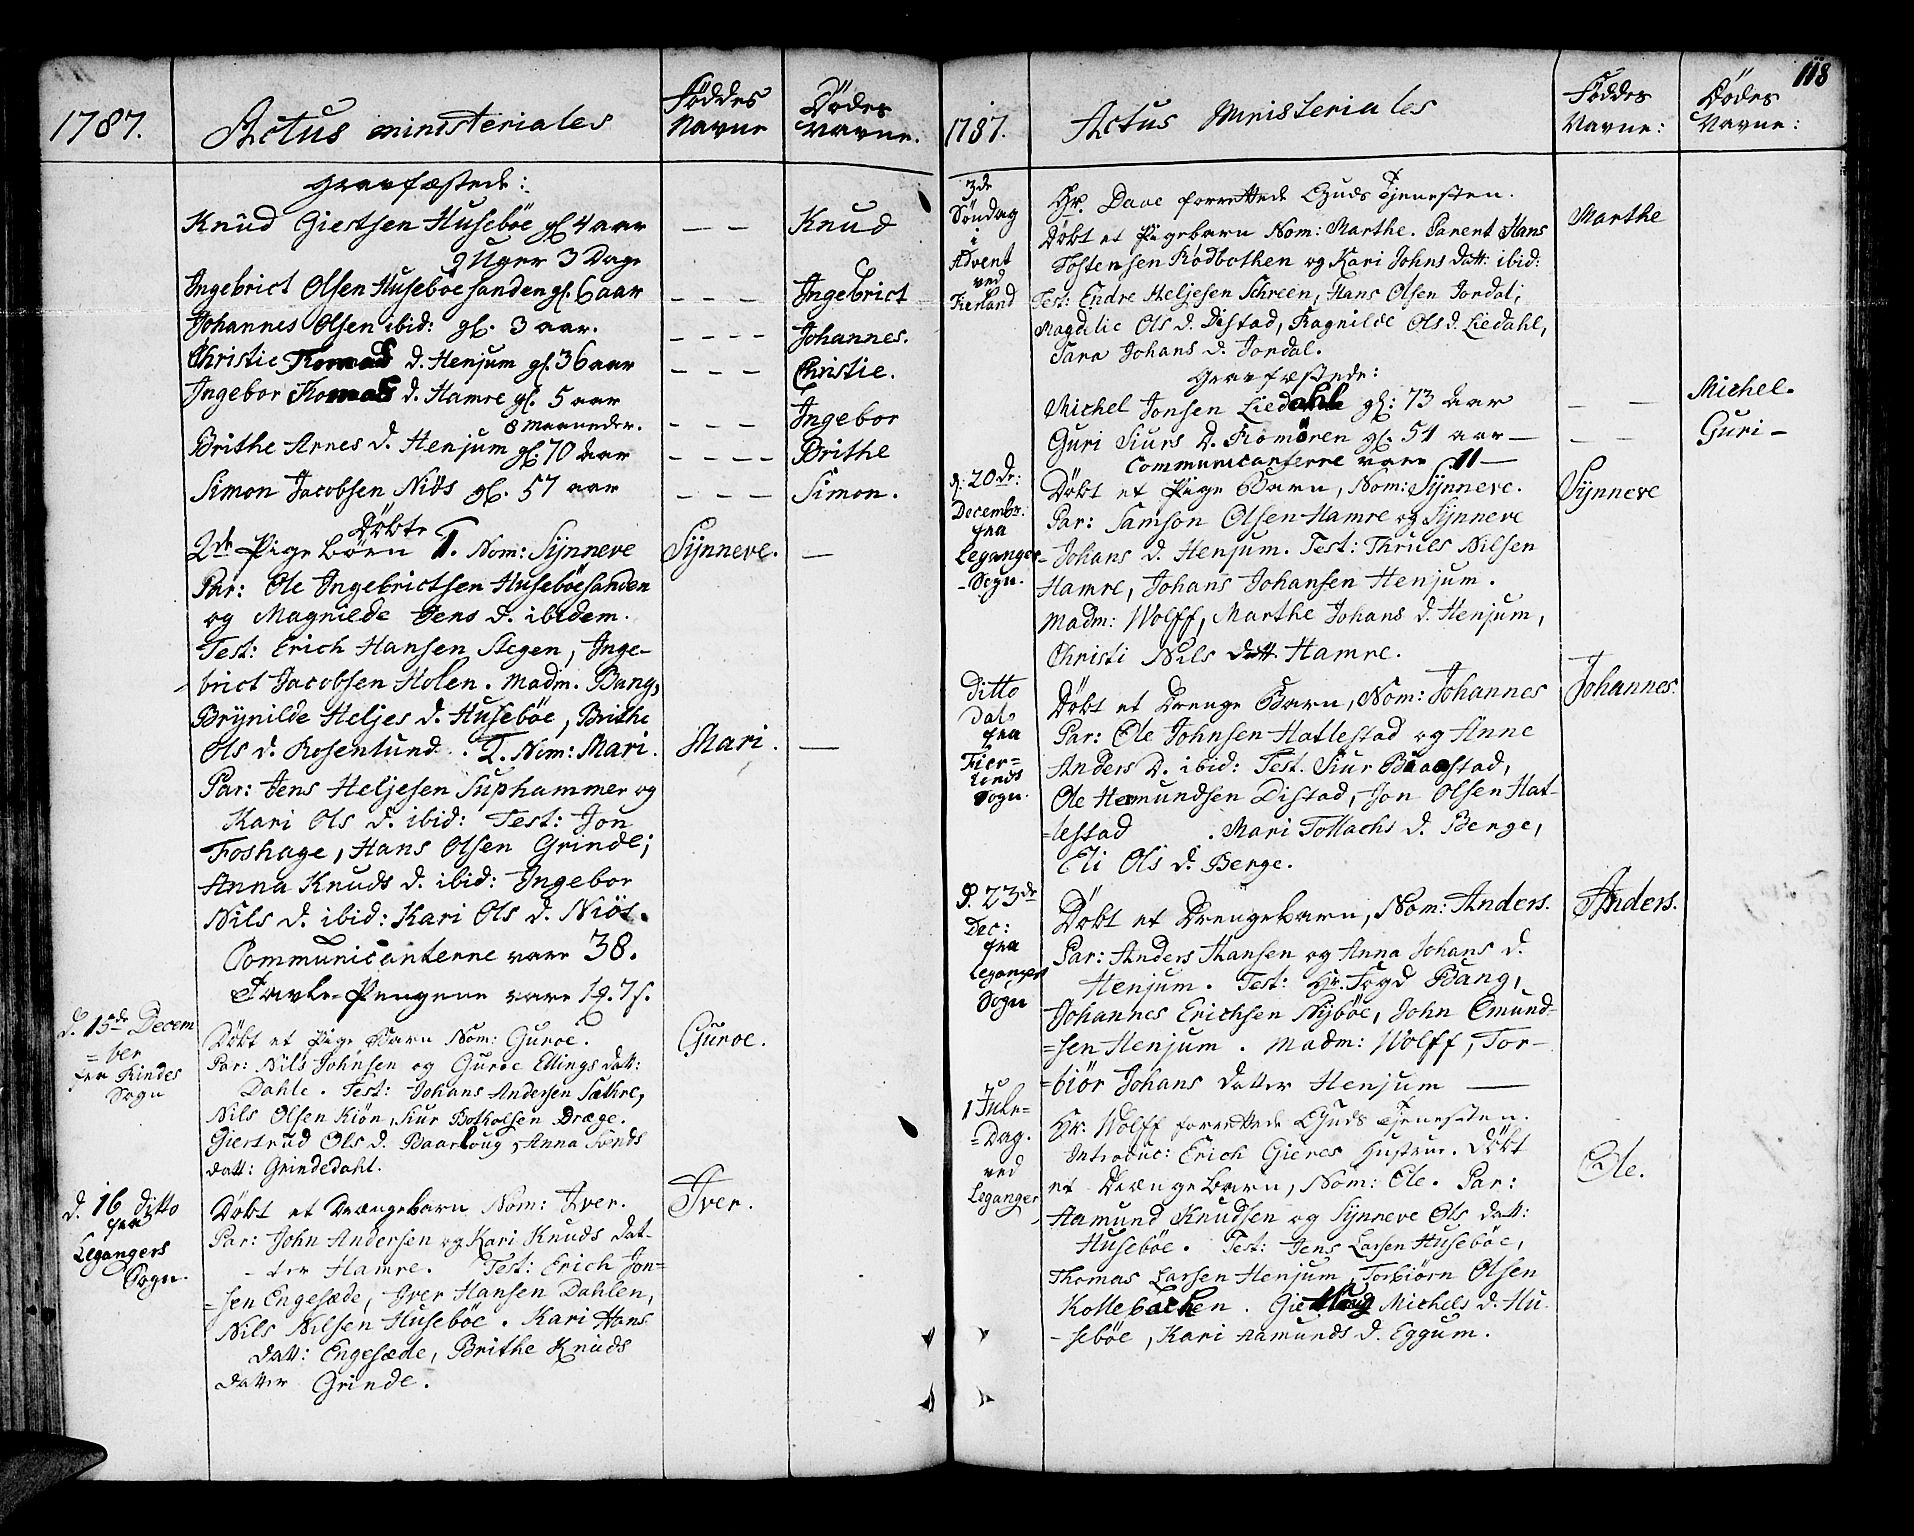 1787.
Actus ministeriales
Föddes
Navne
Dödes
Navne.
Gravfæstede:
Knud Giertsen Huseböe gl. 4 aar
9 Uger 3 Dage
Knud
Ingebrict Olsen Huseböesanden gl. 6 aar
Ingebrict
Johannes Olsen ibid: gl. 3 aar.
Johannes.
Christie Tomas d. Henjum gl. 36 aar
Christie.
Ingebor Tomas d. Hamre gl. 5 aar
8 Maaneder.
Ingebor
Brithe Arnes d. Henjum gl. 70 aar
Brithe
Simon Jacobsen Niös gl. 57 aar
Simon.
Döbte
2de Pige börn 1. Nom: Synneve
Synneve.
Par: Ole Ingebrictsen Huseböesanden
og Magnilde Jens d. ibidem.
Test: Erich Hansen Stegen, Inge-
brict Jacobsen Holen. Madm. Bang,
Brynilde Heljes d. Huseböe, Brithe
Ols d. Rosenlund. 2. Nom: Mari.
Mari.
Par: Jens Heljesen Suphammer og
Kari Ols d. ibid: Test: Jon
Foshage, Hans Olsen Grinde;
Anna Knuds d. ibid: Ingebor
Nils d. ibid: Kari Ols d. Niös.
Communicanterne vare 38.
Tavle-Pengene vare 7 s.
d. 15de Decem
=ber
fra Rindes
Sogn
Döbt et Pige Barn Nom: Guroe.
Guroe.
Par: Nils Johnsen og Guroe Ellings datt:
Dahle. Test: Johans Andersen Sæthre,
Nils Olsen Kiön, Siur Botholsen Dræge.
Giertrud Ols d. Baarloug, Anna
datt: Grindedahl.
d. 16 ditto
fra
Legangers
Sogn.
Döbt et Drængebarn Nom: Iver.
Iver.
Par: John Andersen og Kari Knuds dat-
ter Hamre. Test: Erich Jon=
=sen Engesæde, Iver Hansen Dahlen,
Nils Nilsen Huseböe. Kari Hans
datt: Engesæde, Brithe Knuds
datter Grinde.
118
1787.
Actus Ministeriales
Föddes
Navne:
Dödes
Navne:
3de
Söndag
i
Advent
ved
Fierland
Hr. Daae forrettede Guds Tjenesten.
Döbt et Pigebarn Nom: Marthe. Parent Hans
Marthe
Tostensen Rödbothen og Kari Johns datt: ibid:
Test: Endre Heljesen Schreen, Hans Olsen Jordal,
Magdelie Ols d. Distad, Ragnilde Ols d. Liedahl,
Sara Johans d. Jordal.
Gravfæstede:
Michel Jonsen Liedahl gl: 73 aar
Michel.
Guri Siurs d. Romören gl. 54 aar
Guri
Communicanterne vare 11
d: 20de:
Decembr:
fra
Leganger
Sogn.
Döbt et Pige Barn, Nom: Synneve.
Synneve
Par: Samson Olsen Hamre og Synneve
Johans d. Henjum. Test: Thruls Nilsen
Hamre, Johans Johansen Henjum.
Madm: Wolff, Marthe Johans d. Henjum,
Christi Nils datt. Hamre.
Ditto
Dat.
fra
Fier=
lends
Sogn.
Döbt et Drenge Barn, Nom: Johannes
Johannes.
Par: Ole Johnsen Hatlestad og Anne
Anders d. ibid: Test. Siur
Ole Hermundsen Distad, Jon Olsen Hat-
=lestad. Mari Tollachs d. Berge,
Eli Ols d. Berge.
d. 23de
Dec:
fra
Legangers
Sogn
Döbt et Drengebarn, Nom: Anders.
Anders.
Par: Anders Hansen og Anna Johans d.
Henjum. Test: Hr. Fogd Bang,
Johannes Erichsen Nyböe, John Emund-
=sen Henjum. Madm: Wolff, Tor-
=biör Johans datter Henjum
1 Jule=
=Dag.
ved
Leganger
Hr. Wolff forrettede Guds Tjenesten.
Introduc: Erich Gieres Hustrue. Döbt
et Drænge barn, Nom: Ole. Par:
Ole.
Aamund Knudsen og Synneve Ols datt:
Huseböe. Test: Jens Larsen Huseböe,
Thomas Larsen Henjum, Torbiörn Olsen
Kollebacken. Michels d. Hu-
-seböe, Kari Aamunds d. Eggum.